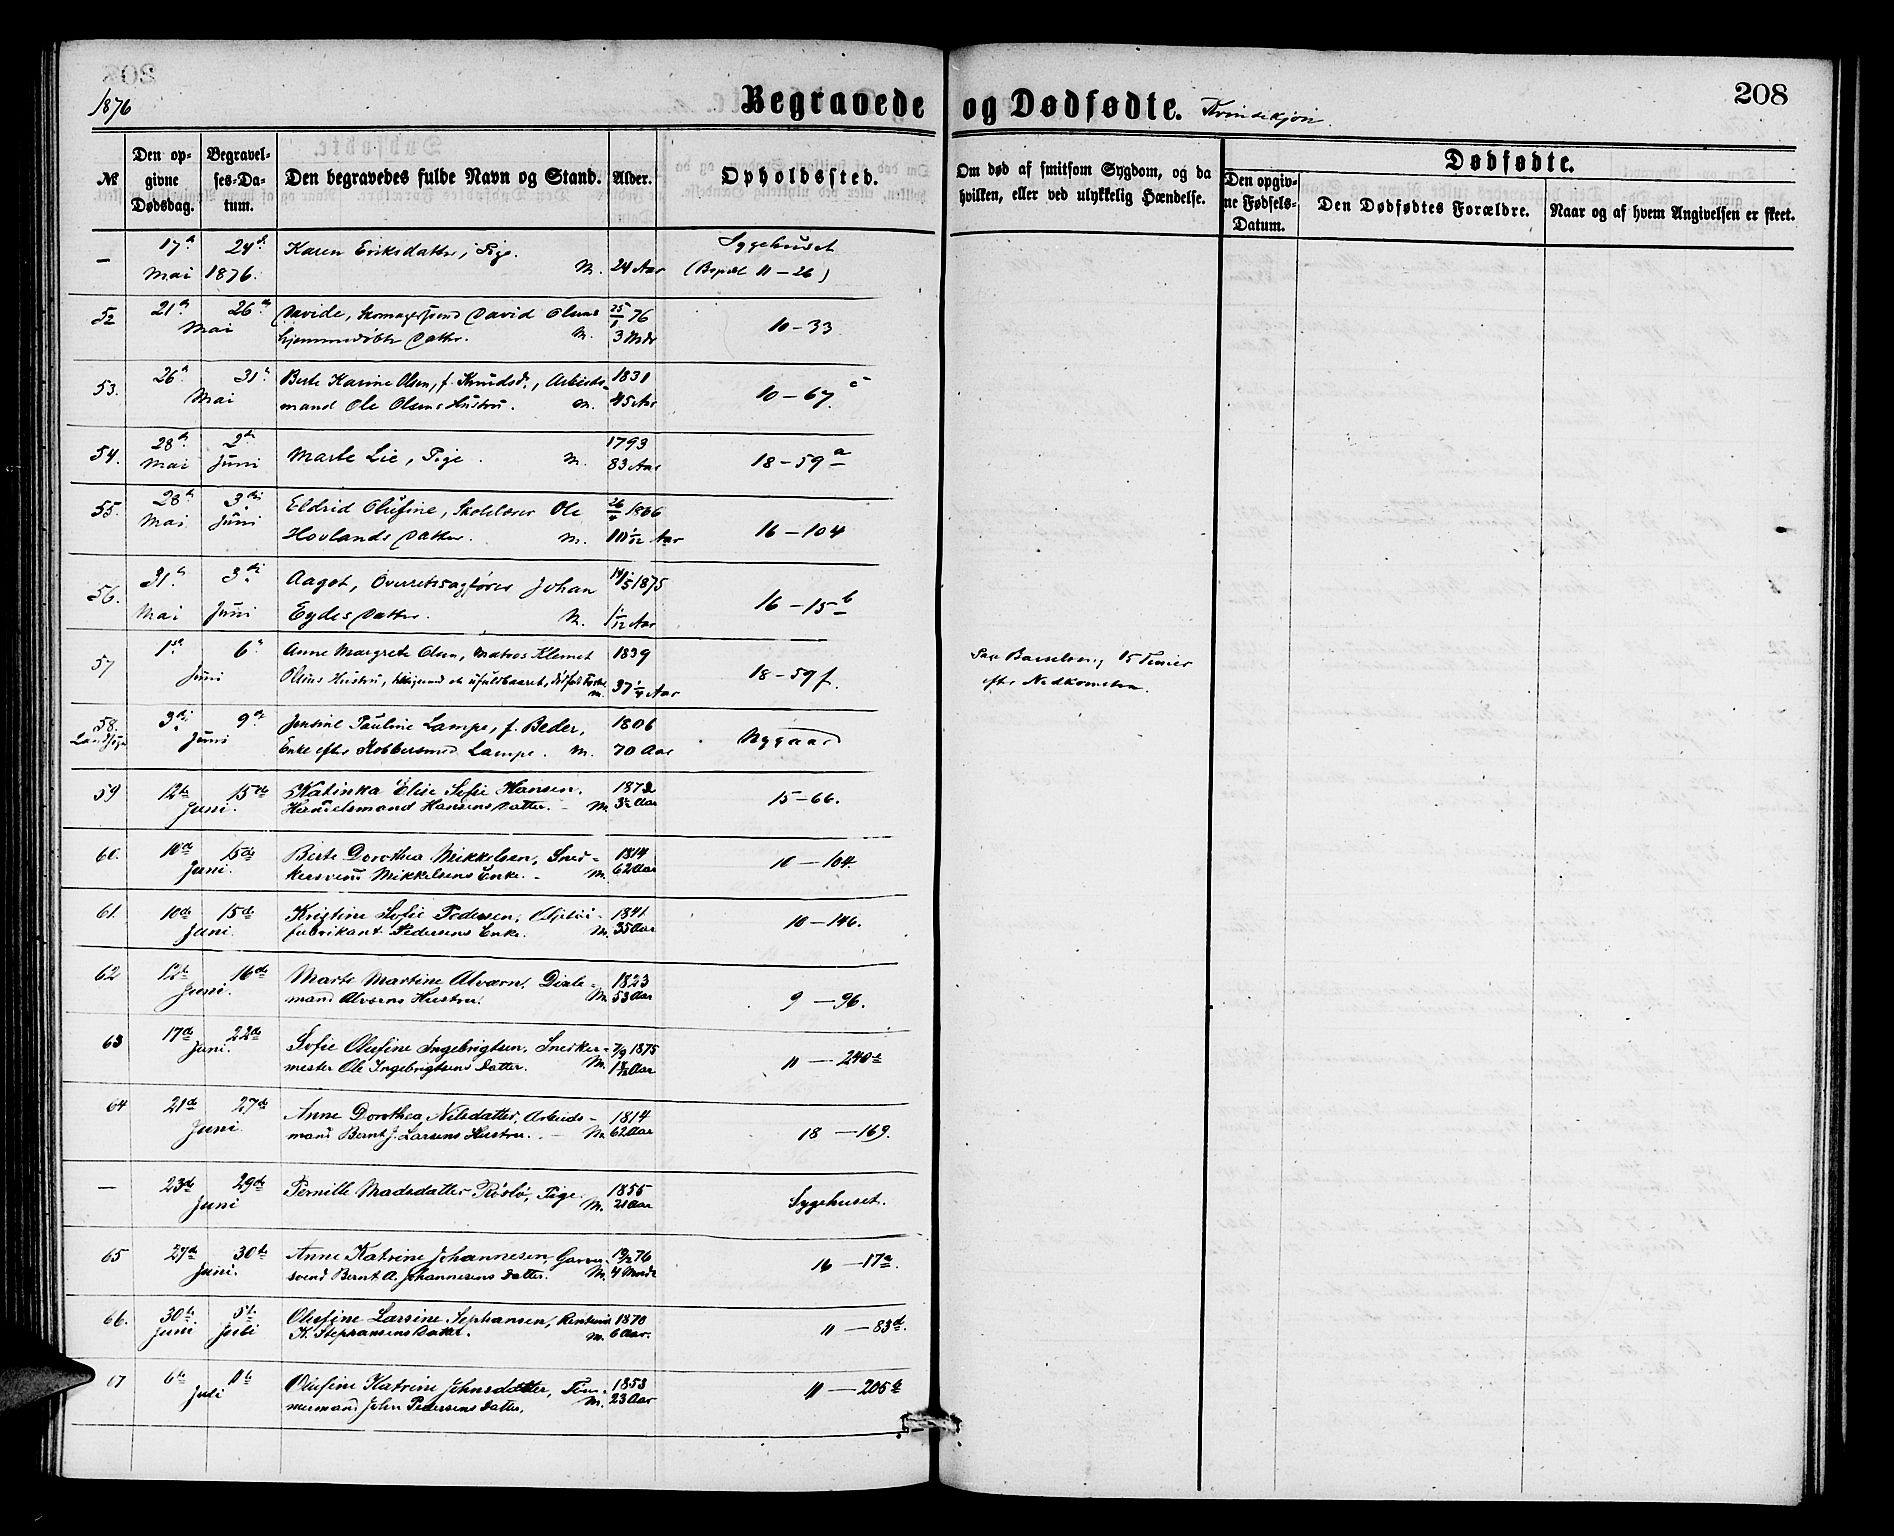 208
1876
Begravede og Dødfødte. Kvindekjøn.
№
Den opgivne Dødsdag.
Begravelses-Datum.
Den begravedes fulde Navn og Stand.
Alder.
Opholdssted.
Om død af smitsom Sygdom, og da hvilken, eller ved ulykkelig Hændelse.
Dødfødte.
Den opgivne Fødsels-Datum.
Den Dødfødtes Forældre.
Naar og af hvem Angivelsen er skeet.
— 17de 24de Karen Eriksdatter, Pige. Sygehuset
Mai 1876. M. 24 Aar (Bopæl 11-26)
52 21de 26de Davide, Skomagersvend David Olsens 25/1 76
Mai hjemmedøbte Datter. M. 3 Mdr 10-33
53. 26de 31te Berte Karine Olsen, f. Knudsd., Arbeids- 1831
Mai mand Ole Olsens Hustru. M. 45 Aar 10-67c
54. 28de 2den Marte Lie, Pige. 1793
Mai Juni M. 83 Aar 18-59a
55. 28de 3die Eldrid Olufine, Skolelærer Ole 26/4 1866
Mai Juni Hovlands Datter. M. 10 1/12 Aar 16-104
56. 31te 3die Aagot, Overretssagfører Johan 14/5 1875
Mai Juni Eydes Datter. M. 1 1/12 Aar 16-15b
57 1ste 6te Anne Margrete Olsen, Matros Klemet 1839
Juni Olsens Hustru, ufuldbaaret, M. 37 1/4 Aar 18-59f.
Paa Barselseng, 15 Timer
efter Nedkomsten.
58. 3die 9de Jensine Pauline Lampe, f. Beder, 1806
Juni Enke efter Kobbersmed Lampe. M. 70 Aar Nygaard
59 12te 15de Katinka Elise Sofie Hansen, 1872
Juni. Handelsmand Hansens Datter. M. 3½ Aar 15-66.
60. 10de 15de Berte Dorothea Mikkelsen, Sned- 1814
Juni. kersvend Mikkelsens Enke. M. 62 Aar 10-104.
61. 10de 15de Kristine Sofie Pedersen, 1841
Juni. fabrikant Pedersens Enke. M. 35 Aar 10-146.
62 12te 16de Marte Martine Alvorn, Dixle- 1823
Juni. mand Hustru. M. 53 Aar 9-96.
63 17de 22de Sofie Olufine Ingebrigtsen, Snedker- 7/9 1875
Juni. mester Ole Ingebrigtsens Datter. M. Aar 11-240a
64 21de 27de Anne Dorothea Nilsdatter, Arbeids- 1814
Juni. mand Bernt J. Larsens Hustru. M. 62 Aar 18-169.
— 23de 29de Pernille Madsdatter Røslø, Pige. 1855
Juni M. 21 Aar Sygehuset.
65 27de 30te Anne Katrine Johannesen, Garver- 19/2 76
Juni. svend Bernt A. Johannesens Datter. M. 4 Mndr 16-17a.
66. 30te 5te Olufine Larsine Sephansen, 1870
Juni Juli K. Stephansens Datter. M. 6 Aar. 11-83d.
67 6te 11te Olufine Katrine Johnsdatter, Tøm- 1853
Juli mermand John Pedersens Datter. M. 23 Aar 11-205b